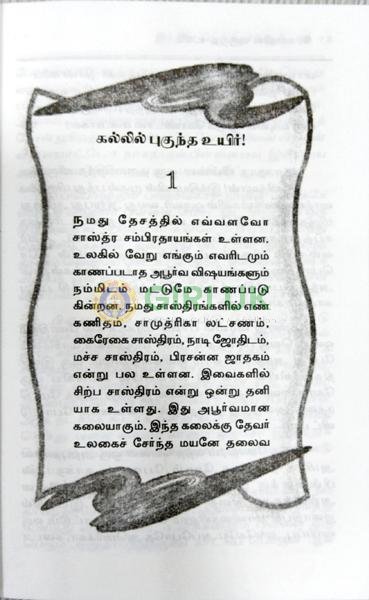 கல்லில் புகுந்த உயிர்!
1
நமது தேசத்தில் எவ்வளவோ
சாஸ்த்ர சம்பிரதாயங்கள் உள்ளன.
உலகில் வேறு எங்கும் எவரிடமும்
காணப்படாத அபூர்வ விஷயங்களும்
நம்மிடம் மட்டுமே காணப்படு
கின்றன. நமது சாஸ்திரங்களில் எண்
கணிதம், சாமுத்ரிகா லட்சணம்,
கைரேகை சாஸ்திரம், நாடி ஜோதிடம்,
மச்ச சாஸ்திரம், பிரசன்ன ஜாதகம்
என்று பல உள்ளன. இவைகளில்
சிற்ப சாஸ்திரம் என்று ஒன்று தனி
யாக உள்ளது. இது அபூர்வமான
கலையாகும். இந்த கலைக்கு தேவர்
உலகைச் சேர்ந்த மயனே தலைவ
GIRI UK